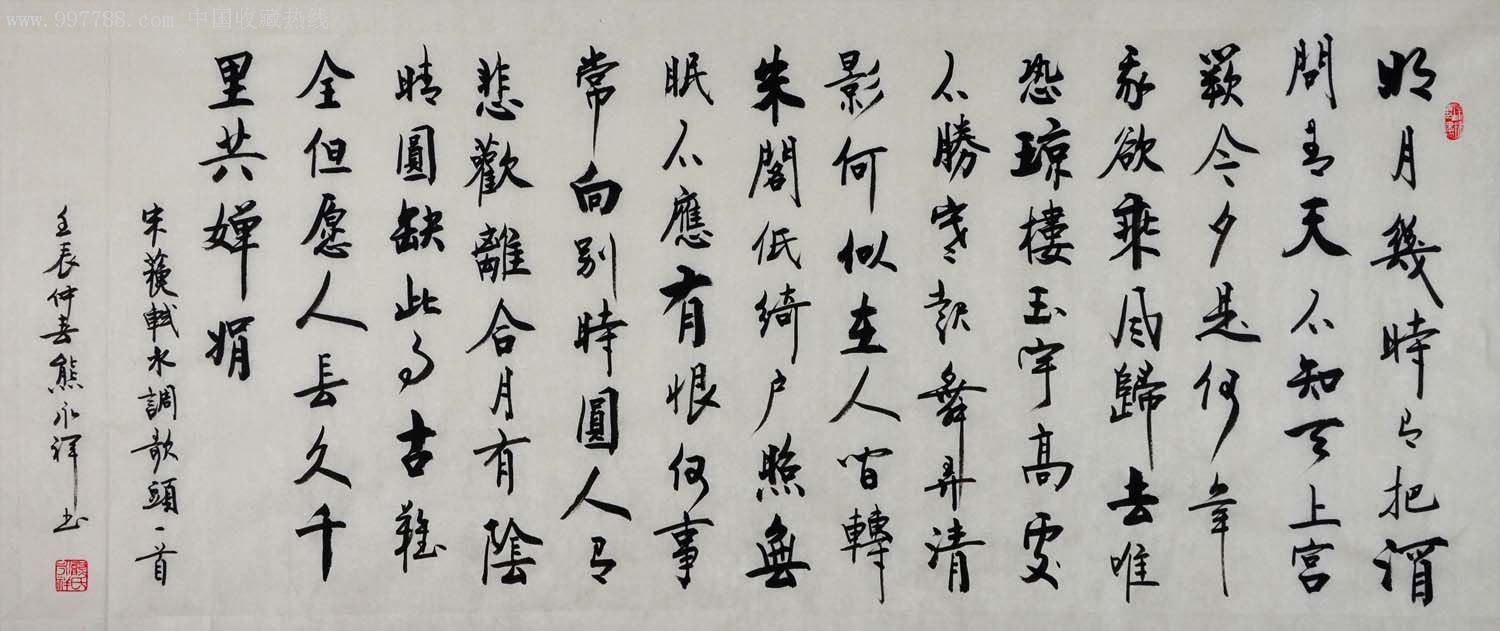 www.997788.com 中国收藏热线
明月幾時有把酒
問青天不知天上宮
闕今夕是何年
我欲乘風歸去唯
恐琼樓玉宇高處
不勝寒起舞弄清
影何似在人間轉
朱閣低綺戶照無
眠不應有恨何事
常向別時圓人有
悲歡離合月有陰
晴圓缺此事古難
全但愿人長久千
里共嬋娟
宋蘇軾水調歌頭一首
壬辰仲春熊永祥书